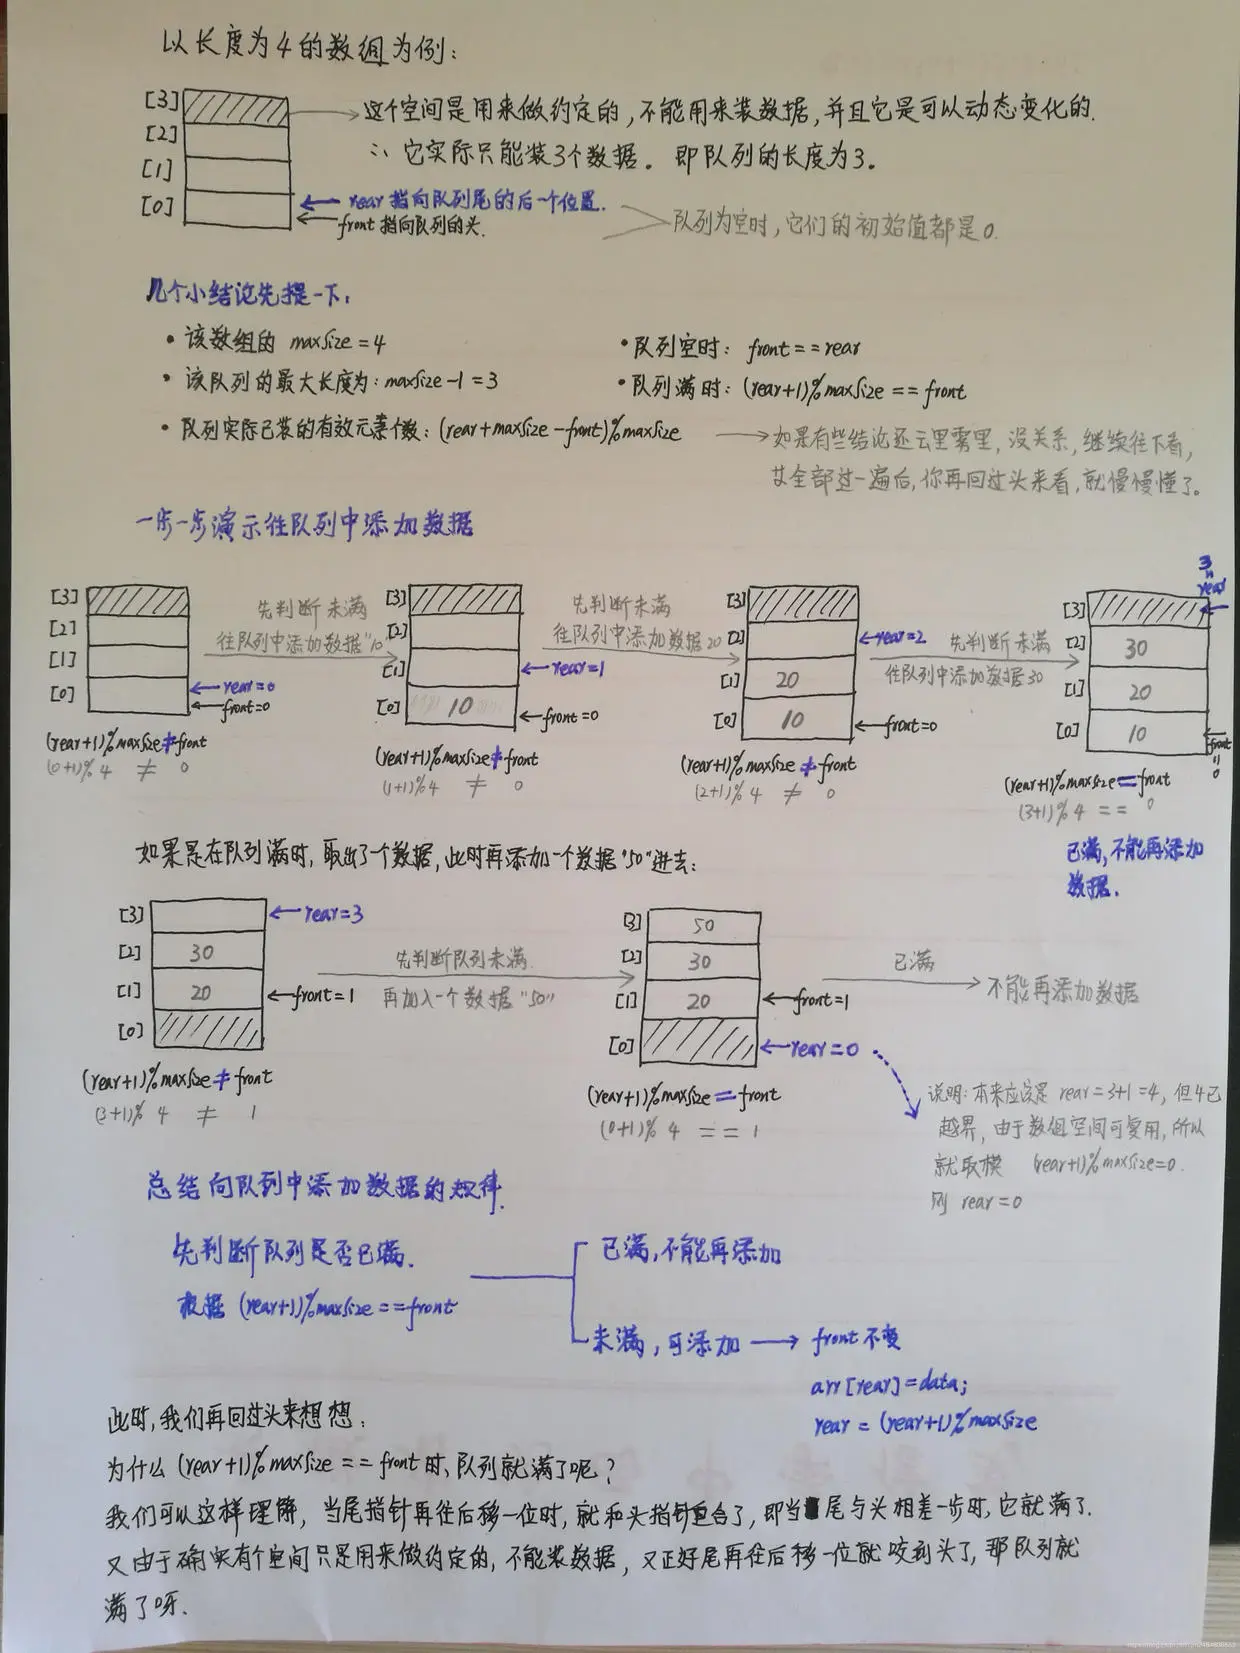 以长度为4的数组为例:
[3]
[2]
[1]
[0]
这个空间是用来做约定的,不能用来装数据,并且它是可以动态变化的.
∴ 它实际只能装3个数据。即队列的长度为3。
rear 指向队列尾的后一个位置.
front 指向队列的头.
队列为空时,它们的初始值都是0.
几个小结论先提一下:
• 该数组的 maxSize=4
• 队列空时: front==rear
• 该队列的最大长度为: maxSize-1=3
• 队列满时: (rear+1)%maxSize==front
• 队列实际已装的有效元素个数: (rear+maxSize-front)%maxSize
如果有些结论还云里雾里,没关系,继续往下看,
全部过一遍后,你再回过头来看,就慢慢懂了。
一步一步演示往队列中添加数据
[3]
[2]
[1]
[0]
rear=0
front=0
(rear+1)%maxSize≠front
(0+1)%4 ≠ 0
先判断未满
往队列中添加数据"10"
[3]
[2]
[1]
[0] 10
rear=1
front=0
(rear+1)%maxSize≠front
(1+1)%4 ≠ 0
先判断未满
往队列中添加数据20
[3]
[2]
[1] 20
[0] 10
rear=2
front=0
(rear+1)%maxSize≠front
(2+1)%4 ≠ 0
先判断未满
往队列中添加数据30
3
=
rear
[3]
[2] 30
[1] 20
[0] 10
front
=
0
(rear+1)%maxSize==front
(3+1)%4 == 0
已满,不能再添加
数据.
如果是在队列满时,取出了一个数据,此时再添加一个数据"50"进去:
[3]
[2] 30
[1] 20
[0]
rear=3
front=1
(rear+1)%maxSize≠front
(3+1)%4 ≠ 1
先判断队列未满.
再加入一个数据"50"
[3] 50
[2] 30
[1] 20
[0]
front=1
rear=0
(rear+1)%maxSize==front
(0+1)%4 == 1
已满
不能再添加数据
说明:本来应该是 rear=3+1=4,但4已
越界,由于数组空间可复用,所以
就取模 (rear+1)%maxSize=0.
则 rear=0
总结向队列中添加数据的规律.
先判断队列是否已满.
根据 (rear+1)%maxSize==front
已满,不能再添加
未满,可添加 → front不变
arr[rear]=data;
rear=(rear+1)%maxSize
此时,我们再回过头来想想:
为什么 (rear+1)%maxSize==front时,队列就满了呢?
我们可以这样理解,当尾指针再往后移一位时,就和头指针重合了,即当尾与头相差一步时,它就满了.
又由于确实有个空间只是用来做约定的,不能装数据,又正好尾再往后移一位就咬到头了,那队列就
满了呀.